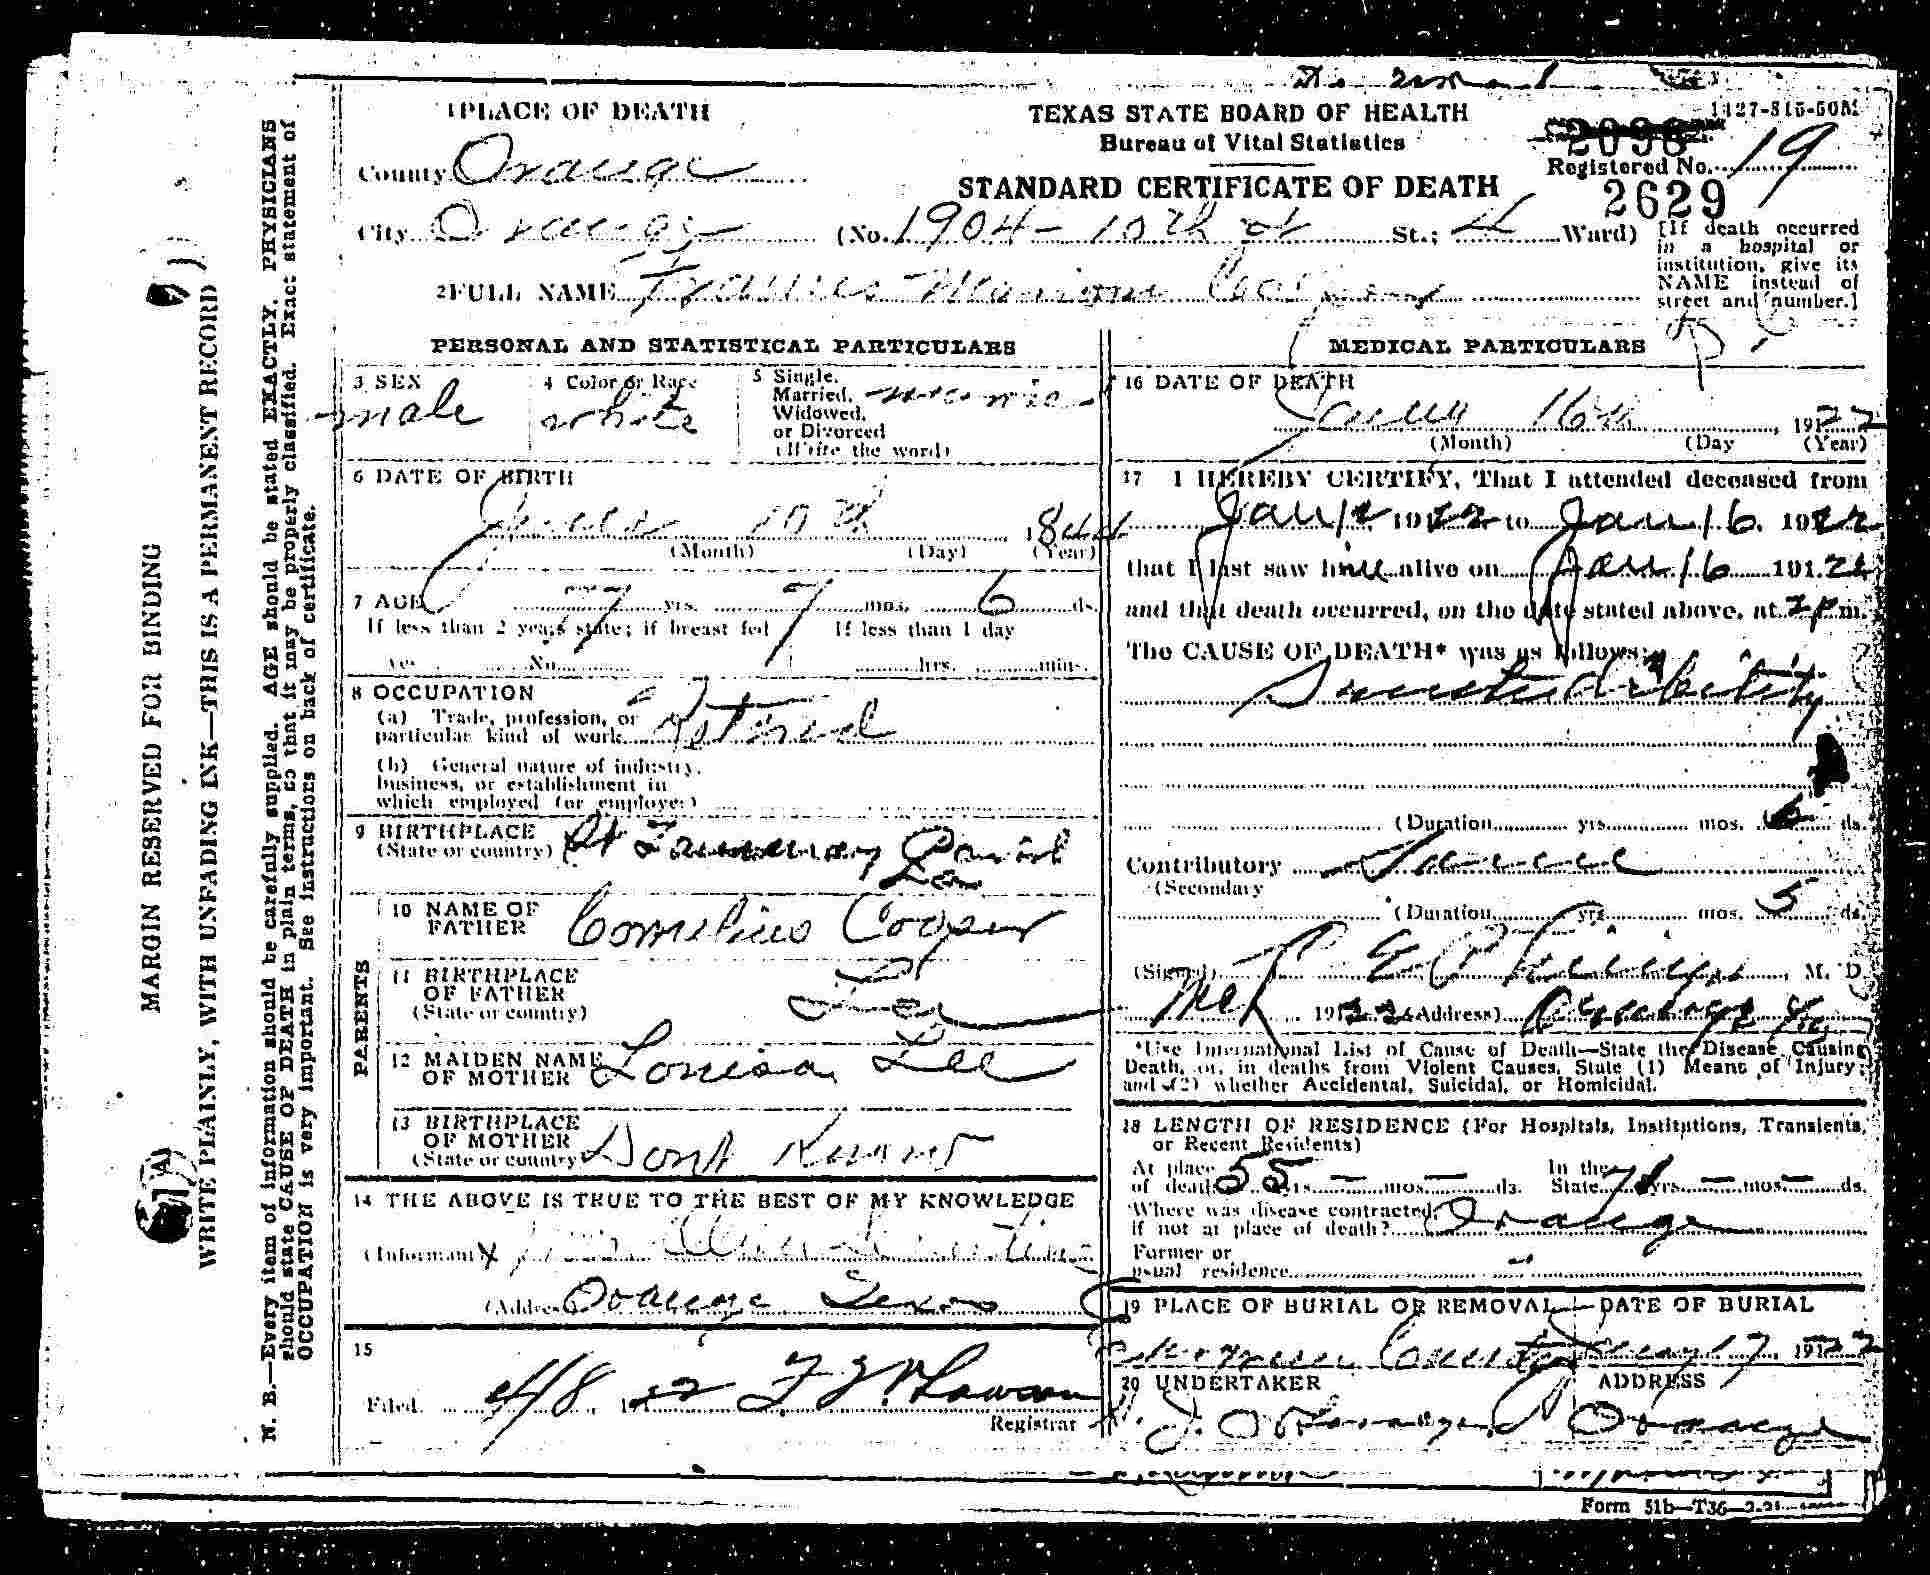 1 PLACE OF DEATH
TEXAS STATE BOARD OF HEALTH
1127-315-50M
Bureau of Vital Statistics
2098
County Orange
Registered No. 19
STANDARD CERTIFICATE OF DEATH
2629
City Orange (No. 1904 - 10th St St.; 4 Ward)
[If death occurred
in a hospital or
institution, give its
NAME instead of
street and number.]
2 FULL NAME Francis Marion Cooper
PERSONAL AND STATISTICAL PARTICULARS
3 SEX
male
4 Color or Race
white
5 Single,
Married,
Widowed,
or Divorced
(Write the word)
6 DATE OF BIRTH
June 10th 1844
(Month) (Day) (Year)
7 AGE 77 yrs. 7 mos. 6 ds.
If less than 2 years state; if breast fed
If less than 1 day
Yes No
hrs. mins.
8 OCCUPATION
(a) Trade, profession, or
particular kind of work Retired
(b) General nature of industry,
business, or establishment in
which employed (or employer)
9 BIRTHPLACE
(State or country) St Tammany Parish
La
PARENTS
10 NAME OF
FATHER Cornelius Cooper
11 BIRTHPLACE
OF FATHER
(State or country) La
12 MAIDEN NAME
OF MOTHER Louisa Lee
13 BIRTHPLACE
OF MOTHER
(State or country Dont Know
14 THE ABOVE IS TRUE TO THE BEST OF MY KNOWLEDGE
(Informant
(Address Orange Texas
15
Filed 4/8, 22
Registrar
MEDICAL PARTICULARS
16 DATE OF DEATH
16th 1922
(Month) (Day (Year)
17 I HEREBY CERTIFY, That I attended deceased from
Jan 12 1922 to Jan 16. 1922
that I last saw him alive on Jan 16 1922
and that death occurred, on the date stated above, at 2 pm.
The CAUSE OF DEATH* was as follows:
debility
(Duration yrs. mos. 6 ds.
Contributory
(Secondary
(Duration yrs. mos. 5 ds.
(Signed) M. D.
1922 (Address) Orange
*Use International List of Cause of Death—State the Disease Causing
Death, or, in deaths from Violent Causes, State (1) Means of Injury;
and (2) whether Accidental, Suicidal, or Homicidal.
18 LENGTH OF RESIDENCE (For Hospitals, Institutions, Transients,
or Recent Residents)
At place
of death 55 yrs. — mos. — ds.
In the
State yrs. — mos. — ds.
Where was disease contracted,
if not at place of death? Orange
Former or
usual residence
19 PLACE OF BURIAL OR REMOVAL
County
DATE OF BURIAL
17, 1922
20 UNDERTAKER
ADDRESS
Orange
Form 51b—T36—2-21
MARGIN RESERVED FOR BINDING
WRITE PLAINLY, WITH UNFADING INK—THIS IS A PERMANENT RECORD
N. B.—Every item of information should be carefully supplied. AGE should be stated EXACTLY. PHYSICIANS
should state CAUSE OF DEATH in plain terms, so that it may be properly classified. Exact statement of
OCCUPATION is very important. See instructions on back of certificate.